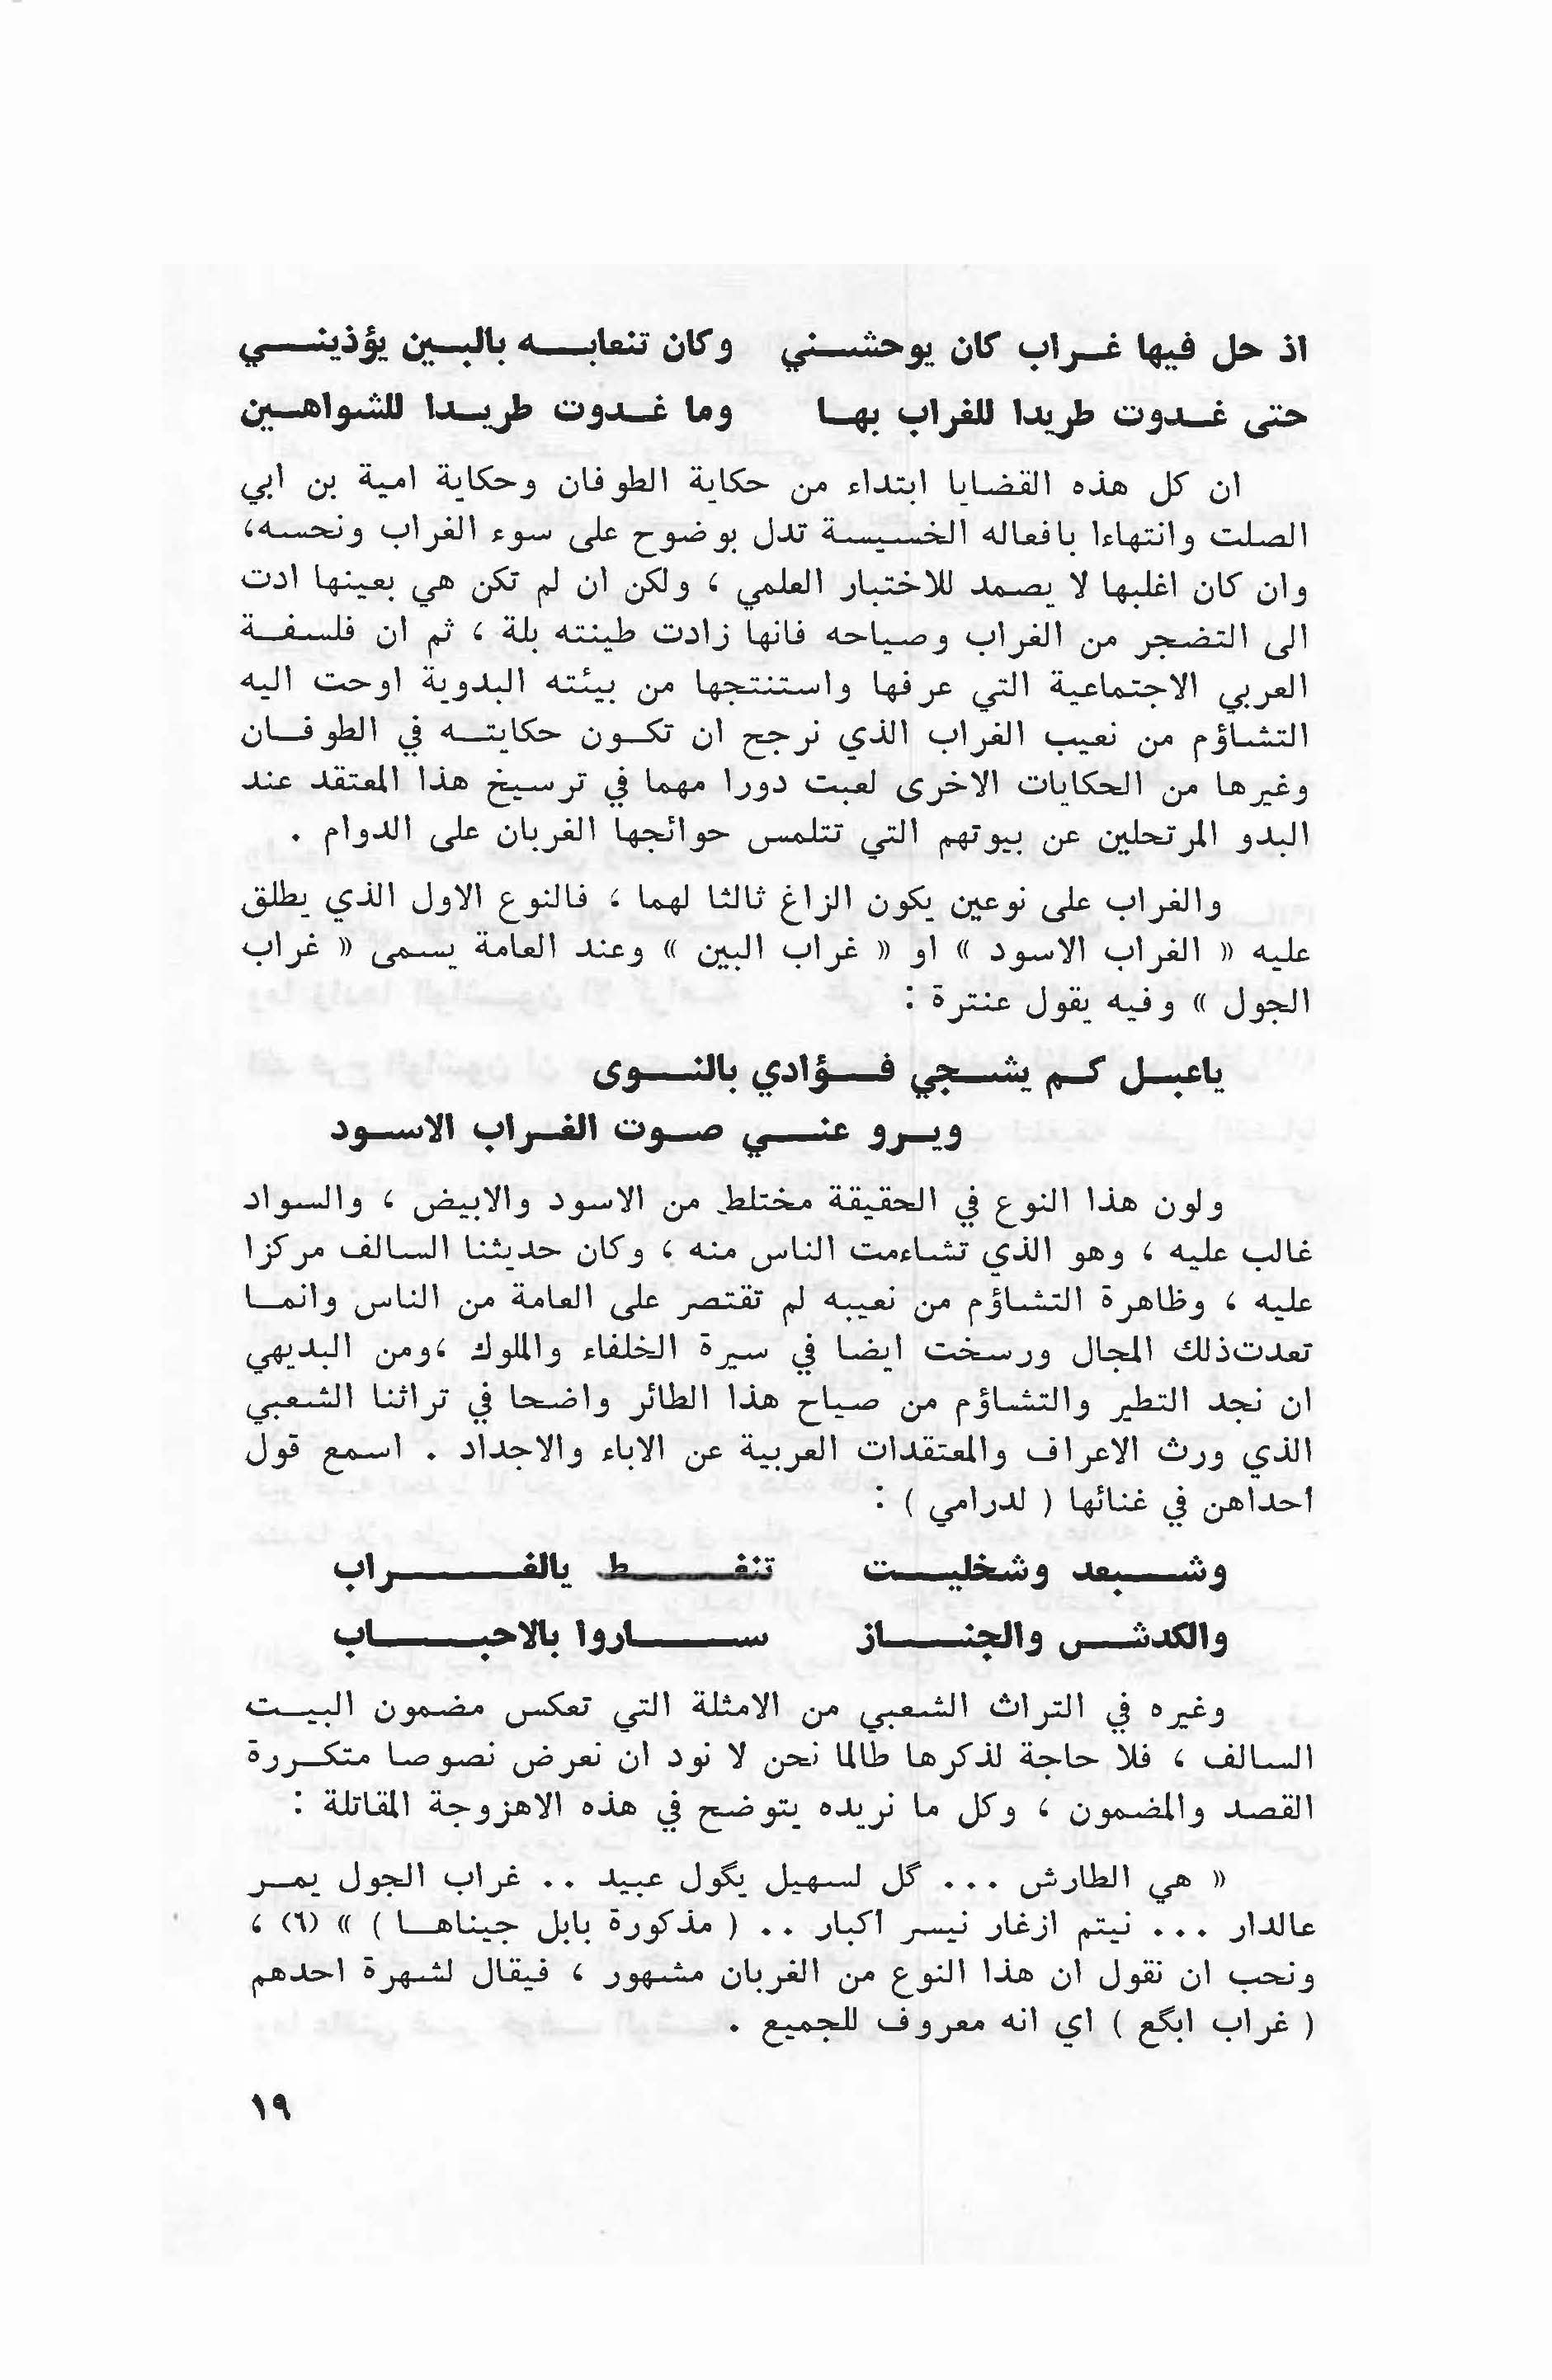 اذ حل فيها غراب كان يوحشني وكان تنعابه بالبين يؤذيني
حتى غدوت طريدا للغراب بها وما غدوت طريدا للشواهين
ان كل هذه القضايا ابتداء من حكاية الطوفان وحكاية امية بن ابي
الصلت وانتهاءا بافعاله الخسيسة تدل بوضوح على سوء الغراب ونحسه،
وان كان اغلبها لا يصمد للاختبار العلمي ، ولكن ان لم تكن هي بعينها ادت
الى التضجر من الغراب وصياحه فانها زادت طينته بلة ، ثم ان فلسفة
العربي الاجتماعية التي عرفها واستنتجها من بيئته البدوية اوحت اليه
التشاؤم من نعيب الغراب الذي نرجح ان تكون حكايته في الطوفان
وغيرها من الحكايات الاخرى لعبت دورا مهما في ترسيخ هذا المعتقد عند
البدو المرتحلين عن بيوتهم التي تتلمس حوائجها الغربان على الدوام .
والغراب على نوعين يكون الزاغ ثالثا لهما ، فالنوع الاول الذي يطلق
عليه « الغراب الاسود » او « غراب البين » وعند العامة يسمى « غراب
الجول » وفيه يقول عنترة :
ياعبل كم يشجي فؤادي بالنوى
ويرو عني صوت الغراب الاسود
ولون هذا النوع في الحقيقة مختلط من الاسود والابيض ، والسواد
غالب عليه ، وهو الذي تشاءمت الناس منه ، وكان حديثنا السالف مركزا
عليه ، وظاهرة التشاؤم من نعيبه لم تقتصر على العامة من الناس وانما
تعدت ذلك المجال ورسخت ايضا في سيرة الخلفاء والملوك ،ومن البديهي
ان نجد التطير والتشاؤم من صياح هذا الطائر واضحا في تراثنا الشعبي
الذي ورث الاعراف والمعتقدات العربية عن الاباء والاجداد . اسمع قول
أحداهن في غنائها ( لدرامي ) :
وشبعد وشخليت تنغط يالغراب
والكدش والجناز ساروا بالاحباب
وغيره في التراث الشعبي من الامثلة التي تعكس مضمون البيت
السالف ، فلا حاجة لذكرها طالما نحن لا نود ان نعرض نصوصا متكررة
القصد والمضمون ، وكل ما نريده يتوضح في هذه الاهزوجة المقاتلة :
« هي الطارش ... گل لسهيل يگول عبيد .. غراب الجول يمر
عالدار ... نيتم ازغار نيسر أكبار .. ( مذكورة بابل جيناها ) » (٦) ،
ونحب ان نقول ان هذا النوع من الغربان مشهور ، فيقال لشهرة احدهم
( غراب ابگع ) اي انه معروف للجميع .
١٩